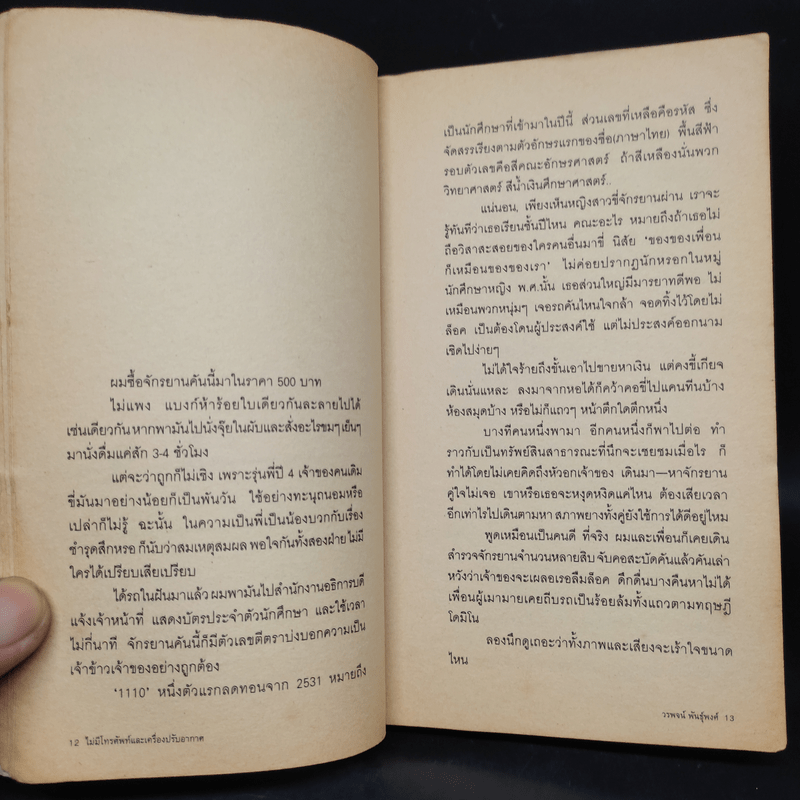 ผมซื้อจักรยานคันนี้มาในราคา 500 บาท
ไม่แพง แบงก์ห้าร้อยใบเดียวกันละลายไปได้
เช่นเดียวกัน หากพามันไปนั่งจุ๊ยในผับและสั่งอะไรขมๆ เย็นๆ
มานั่งดื่มแค่สัก 3-4 ชั่วโมง
แต่จะว่าถูกก็ไม่เชิง เพราะรุ่นพี่ปี 4 เจ้าของคนเดิม
ขี่มันมาอย่างน้อยก็เป็นพันวัน ใช้อย่างทะนุถนอมหรือ
เปล่าก็ไม่รู้ ฉะนั้น ในความเป็นพี่เป็นน้องบวกกับเรื่อง
ชำรุดสึกหรอ ก็นับว่าสมเหตุสมผล พอใจกันทั้งสองฝ่าย ไม่มี
ใครได้เปรียบเสียเปรียบ
ได้รถในฝันมาแล้ว ผมพามันไปสำนักงานอธิการบดี
แจ้งเจ้าหน้าที่ แสดงบัตรประจำตัวนักศึกษา และใช้เวลา
ไม่กี่นาที จักรยานคันนี้ก็มีตัวเลขตีตราบ่งบอกความเป็น
เจ้าข้าวเจ้าของอย่างถูกต้อง
'1110' หนึ่งตัวแรกลดทอนจาก 2531 หมายถึง
12 ไม่มีโทรศัพท์และเครื่องปรับอากาศ
เป็นนักศึกษาที่เข้ามาในปีนี้ ส่วนเลขที่เหลือคือรหัส ซึ่ง
จัดสรรเรียงตามตัวอักษรแรกของชื่อ(ภาษาไทย) พื้นสีฟ้า
รอบตัวเลขคือสีคณะอักษรศาสตร์ ถ้าสีเหลืองนั่นพวก
วิทยาศาสตร์ สีน้ำเงินศึกษาศาสตร์..
แน่นอน, เพียงเห็นหญิงสาวขี่จักรยานผ่าน เราจะ
รู้ทันทีว่าเธอเรียนชั้นปีไหน คณะอะไร หมายถึงถ้าเธอไม่
ถือวิสาสะสอยของใครคนอื่นมาขี่ นิสัย 'ของของเพื่อน
ก็เหมือนของของเรา' ไม่ค่อยปรากฏนักหรอกในหมู่
นักศึกษาหญิง พ.ศ.นั้น เธอส่วนใหญ่มีมารยาทดีพอ ไม่
เหมือนพวกหนุ่มๆ เจอรถคันไหนใจกล้า จอดทิ้งไว้โดยไม่
ล็อค เป็นต้องโดนผู้ประสงค์ใช้ แต่ไม่ประสงค์ออกนาม
เชิดไปง่ายๆ
ไม่ได้ใจร้ายถึงขั้นเอาไปขายหาเงิน แต่คงขี้เกียจ
เดินนั่นแหละ ลงมาจากหอได้ก็คว้าคอขี่ไปแคนทีนบ้าง
ห้องสมุดบ้าง หรือไม่ก็แถวๆ หน้าตึกใดตึกหนึ่ง
บางทีคนหนึ่งพามา อีกคนหนึ่งก็พาไปต่อ ทำ
ราวกับเป็นทรัพย์สินสาธารณะที่นึกจะเชยชมเมื่อไร ก็
ทำได้โดยไม่เคยคิดถึงหัวอกเจ้าของ เดินมา—หาจักรยาน
คู่ใจไม่เจอ เขาหรือเธอจะหงุดหงิดแค่ไหน ต้องเสียเวลา
อีกเท่าไรไปเดินตามหา สภาพยางทั้งคู่ยังใช้การได้ดีอยู่ไหม
พูดเหมือนเป็นคนดี ที่จริง ผมและเพื่อนก็เคยเดิน
สำรวจจักรยานจำนวนหลายสิบ จับคอสะบัดคันแล้วคันเล่า
หวังว่าเจ้าของจะเผลอเรอลืมล็อค ดึกดื่นบางคืนหาไม่ได้
เพื่อนผู้เมามายเคยถีบรถเป็นร้อยล้มทั้งแถวตามทฤษฎี
โดมิโน
ลองนึกดูเถอะว่าทั้งภาพและเสียงจะเร้าใจขนาด
ไหน
วรพจน์ พันธุ์พงศ์ 13